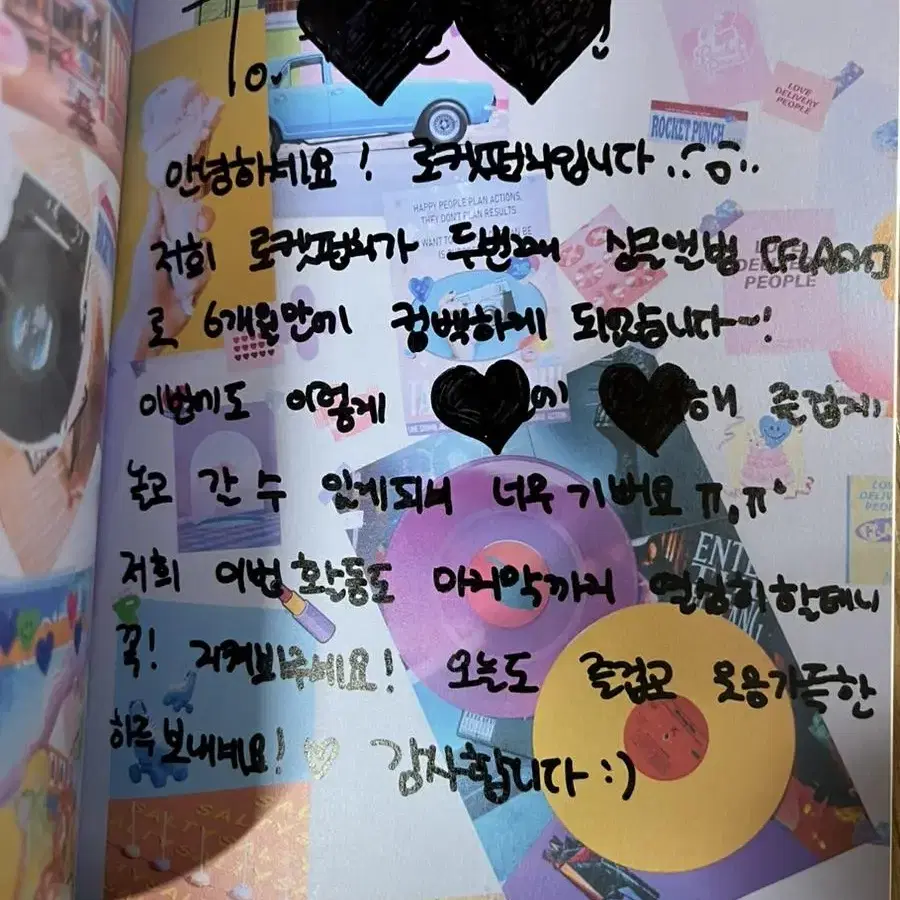 To.
안녕하세요! 로켓펀치입니다.
저희 로켓펀치가 두번째 싱글앨범 [FLASH]
로 6개월만에 컴백하게 되었습니다~!
이번에도 이렇게 에 해 즐겁게
놀고 갈 수 있게되니 너무 기뻐요 ㅠ,ㅠ
저희 이번 활동도 마지막까지 열심히할테니
꼭! 지켜봐주세요! 오늘도 즐겁고 웃음가득한
하루 보내세요!♡ 감사합니다 :)
LOVE DELIVERY PEOPLE
ROCKET PUNCH
HAPPY PEOPLE PLAN ACTIONS,
THEY DON'T PLAN RESULTS
PEOPLE